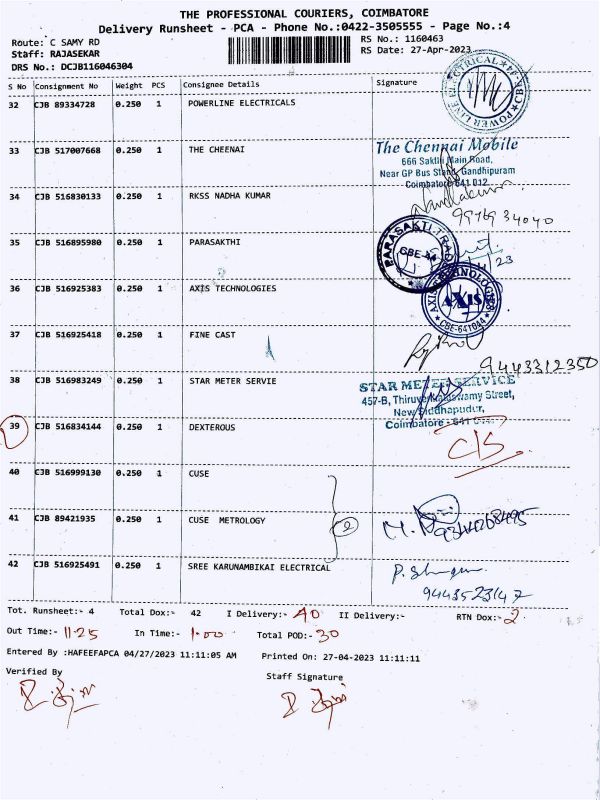 THE PROFESSIONAL COURIERS, COIMBATORE
Delivery Runsheet - PCA - Phone No.:0422-3505555 - Page No.:4
Route: C SAMY RD
RS No.: 1160463
Staff: RAJASEKAR
RS Date: 27-Apr-2023
DRS No.: DCJB116046304
S No Consignment No Weight PCS Consignee Details Signature
32 CJB 89334728 0.250 1 POWERLINE ELECTRICALS
33 CJB 517007668 0.250 1 THE CHEENAI
The Chennai Mobile
666 Sakthi Main Road,
Near GP Bus Stand, Gandhipuram
Coimbatore-641 012
34 CJB 516830133 0.250 1 RKSS NADHA KUMAR
9976934040
35 CJB 516895980 0.250 1 PARASAKTHI
36 CJB 516925383 0.250 1 AXIS TECHNOLOGIES
AXIS TECHNOLOGIES
AXIS
CBE-641044
37 CJB 516925418 0.250 1 FINE CAST
9443312350
38 CJB 516983249 0.250 1 STAR METER SERVIE
STAR METER SERVICE
457-B, Thiruvenkataswamy Street,
New Siddhapudur,
Coimbatore - 641
39 CJB 516834144 0.250 1 DEXTEROUS
C/S
40 CJB 516999130 0.250 1 CUSE
41 CJB 89421935 0.250 1 CUSE METROLOGY
2
42 CJB 516925491 0.250 1 SREE KARUNAMBIKAI ELECTRICAL
9443523147
Tot. Runsheet:- 4 Total Dox:- 42 I Delivery:- 40 II Delivery:- RTN Dox:- 2
Out Time:- 11.25 In Time:- 1.00 Total POD:- 30
Entered By :HAFEEFAPCA 04/27/2023 11:11:05 AM Printed On: 27-04-2023 11:11:11
Verified By
Staff Signature